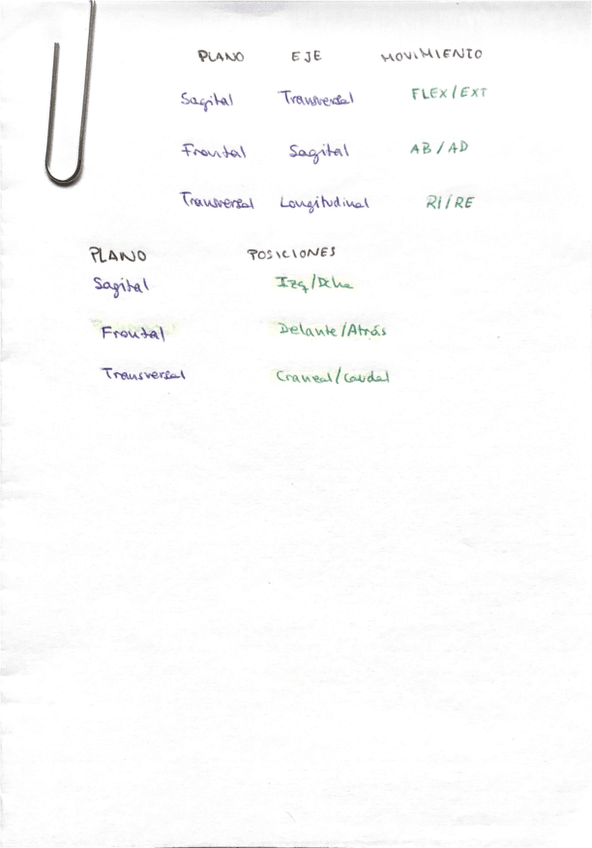 PLANO EJE MOVIMIENTO
Sagital Transversal FLEX/EXT
Frontal Sagital AB/AD
Transversal Longitudinal RI/RE
PLANO POSICIONES
Sagital Izq/Dcha
Frontal Delante/Atrás
Transversal Craneal/Caudal